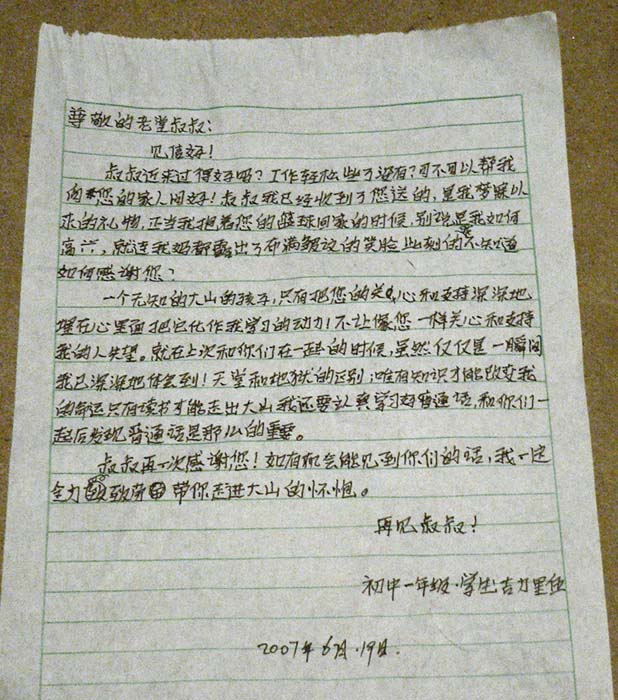 尊敬的老堂叔叔:
见信好!
叔叔近来过得好吗?工作轻松些了没有?可不可以帮我
向您的家人问好!叔叔我已经收到了您送的,是我梦寐以
求的礼物,正当我抱着您的篮球回家的时候,别说是我如何
高兴,就连我妈都露出了布满皱纹的笑脸此刻的不知道
如何感谢您?
一个无知的大山的孩子,只有把您的关心和支持深深地
埋在心里面把它化作我学习的动力!不让像您一样关心和支持
我的人失望。就在上次和你们在一起的时候,虽然仅仅是一瞬间
我已深深地体会到!天堂和地狱的区别,唯有知识才能改变我
的命运只有读书才能走出大山我还要认真学习好普通话,和你们一
起后发现普通话是那么的重要。
叔叔再一次感谢您!如有机会能见到你们的话,我一定
全力带你走进大山的怀抱。
再见叔叔!
初中一年级·学生:吉力里伍
2007年6月·19日.